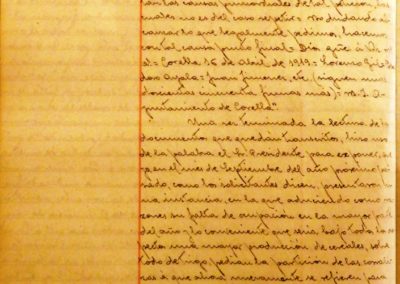 las causas primordiales de tal peticion, las
cuales no es del caso repetir = No dudando al
canzar lo que legalmente pedimos, hacemos
con tal causa punto final = Dios que á Vs.
al = Corella 16 de Abril de 1919 = Lorenzo
Ayala = Juan Jimenez, etc. (siguen mas
doscientas cincuenta firmas mas) = M. I. A
yuntamiento de Corella".
Una vez terminada la lectura de los
documentos que quedan transcritos, hizo uso
de la palabra el Sr. Presidente para exponer, que
en el mes de Septiembre del año proximo pa
sado, como los solicitantes dicen, presentaron
una instancia, en la que aduciendo como ra
zones su falta de ocupación en la mayor parte
del año y lo conveniente que seria, bajo todo con
cepto una mayor producción de cereales, sobre
todo de trigo pedian la partición de las corrali
zas é que ahora nuevamente se refieren para